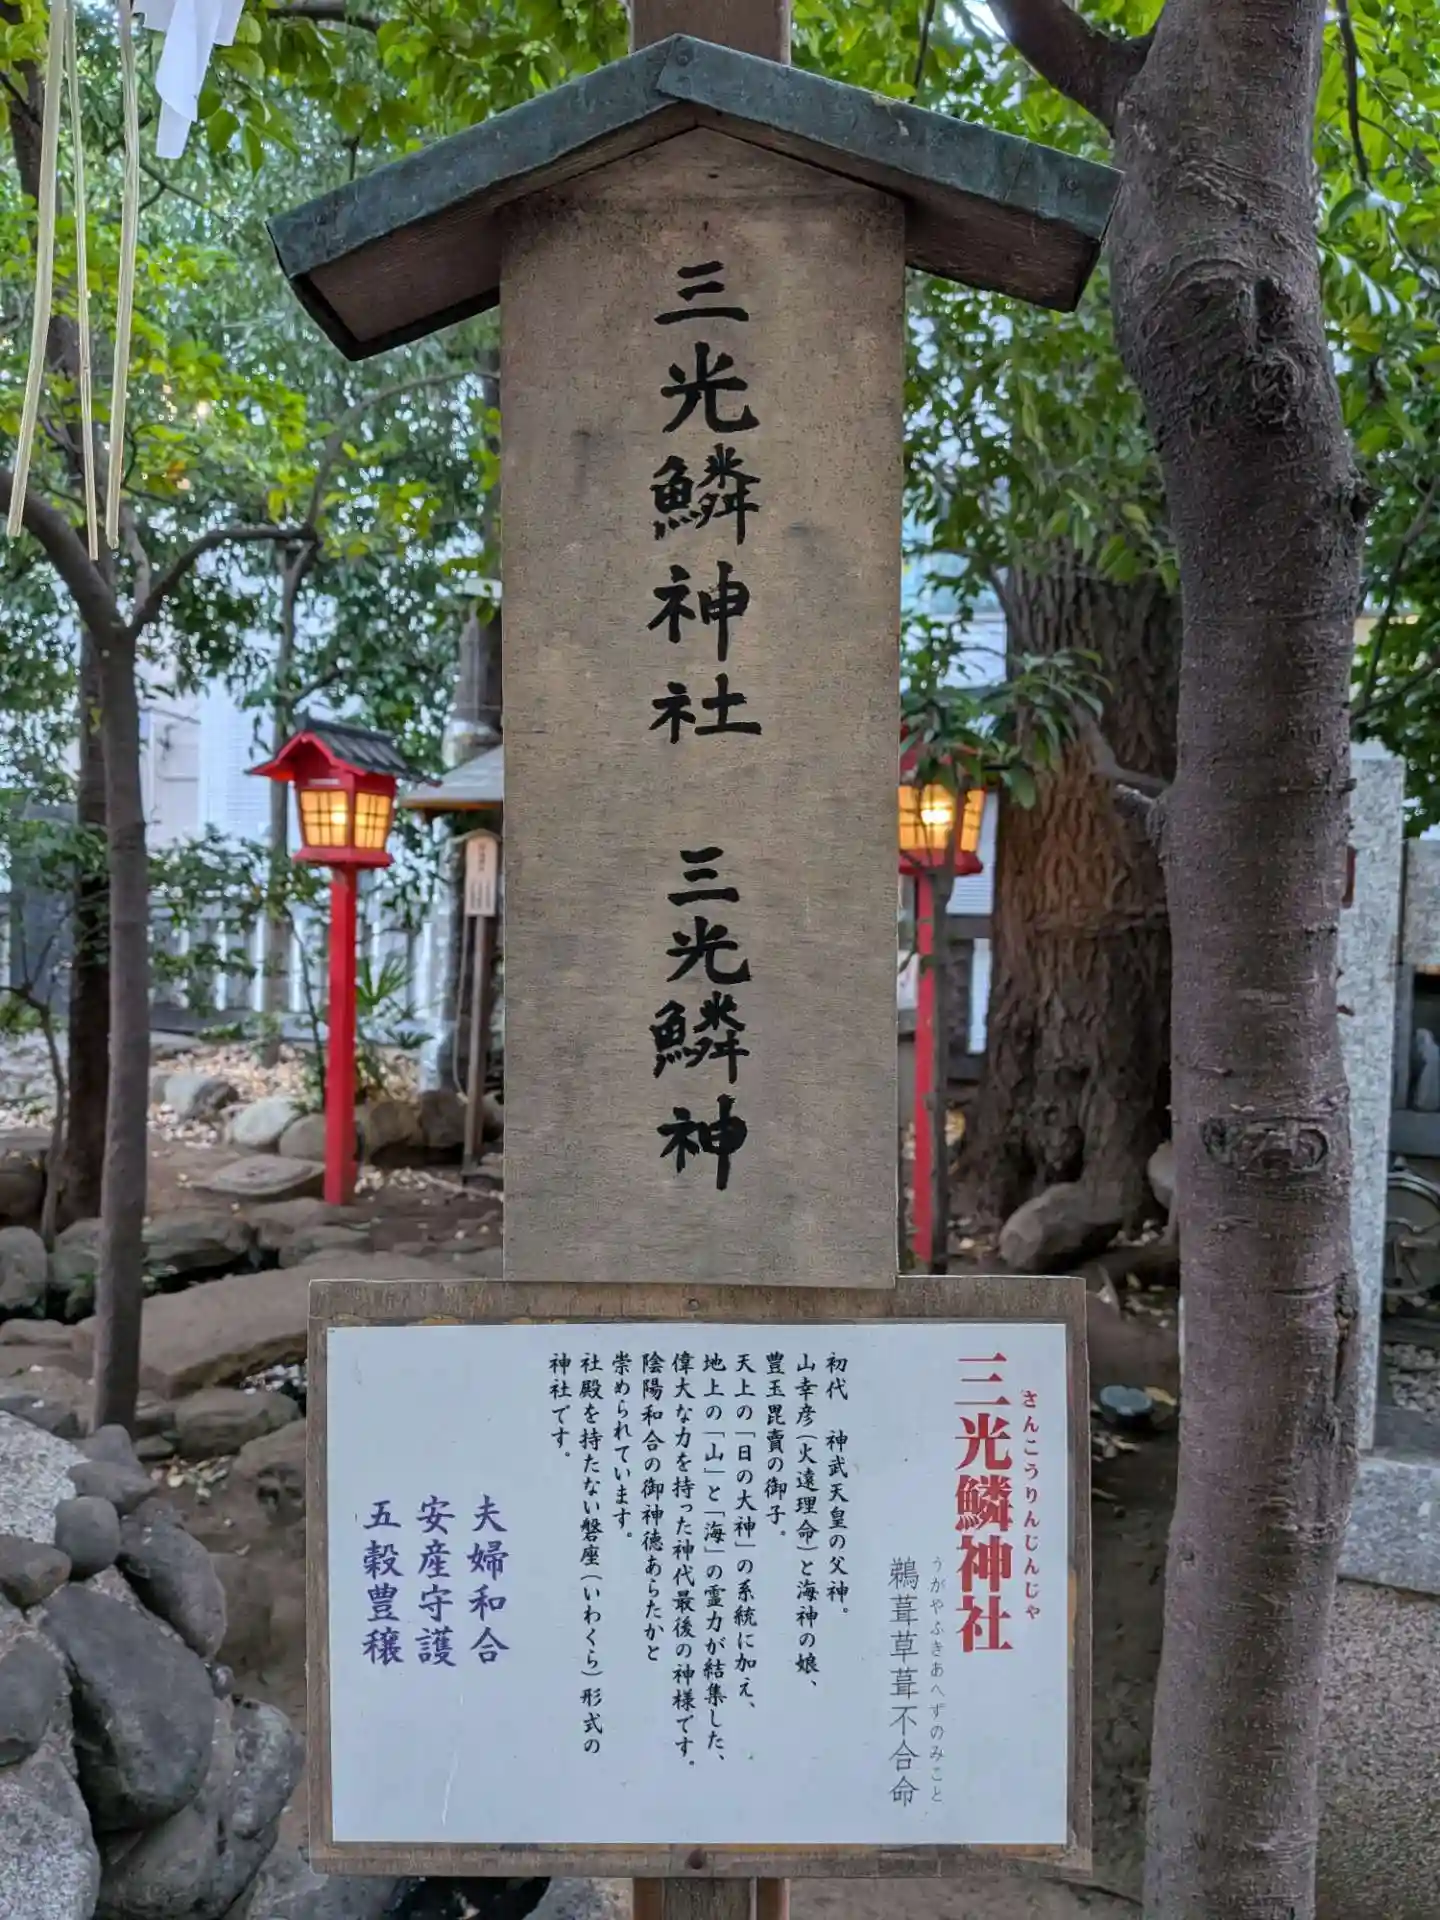 三光鱗神社 三光鱗神
三光鱗神社
さんこうりんじんじゃ
鵜葺草葺不合命
うがやふきあへずのみこと
初代 神武天皇の父神。
山幸彦（火遠理命）と海神の娘、
豊玉毘賣の御子。
天上の「日の大神」の系統に加え、
地上の「山」と「海」の霊力が結集した、
偉大な力を持った神代最後の神様です。
陰陽和合の御神徳あらたかと
崇められています。
社殿を持たない磐座（いわくら）形式の
神社です。
夫婦和合
安産守護
五穀豊穣